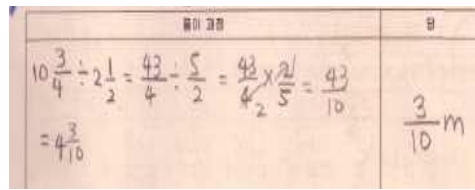 풀이 과정 답
10 3/4 ÷ 2 1/2 = 43/4 ÷ 5/2 = 43/4 × 2/5 = 43/10
2
= 4 3/10
3/10 m